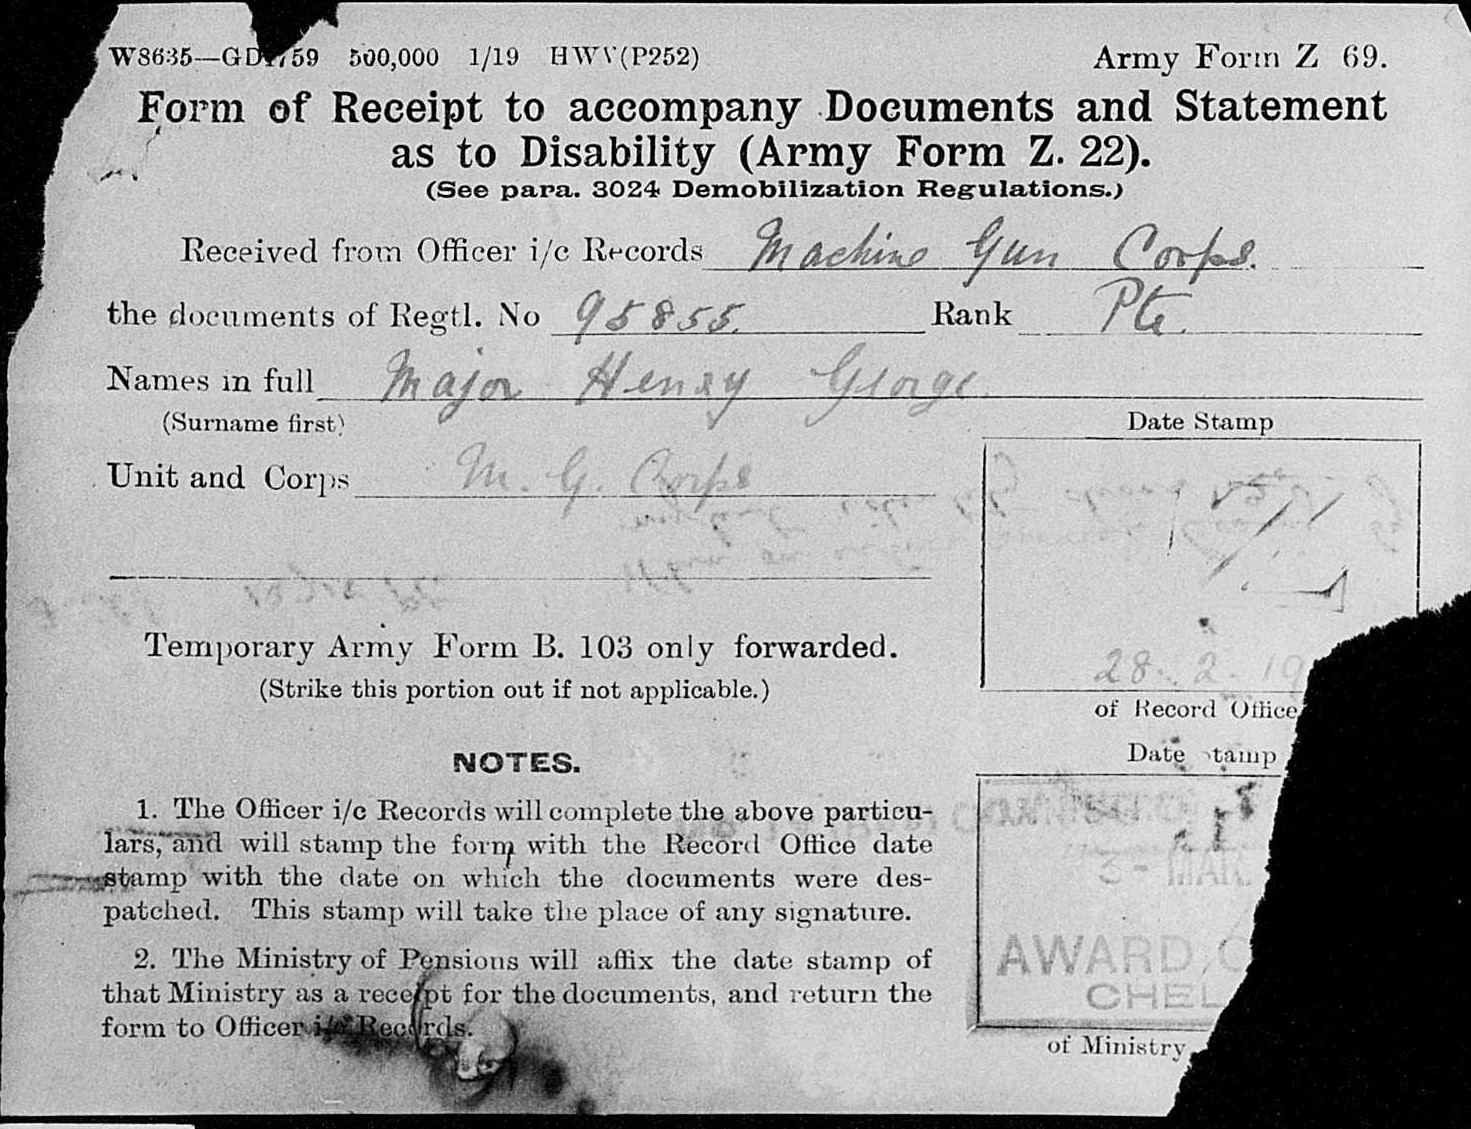 W8635—GD1759 500,000 1/19 HWV(P252) Army Form Z 69.
Form of Receipt to accompany Documents and Statement
as to Disability (Army Form Z. 22).
(See para. 3024 Demobilization Regulations.)
Received from Officer i/c Records Machine Gun Corps.
the documents of Regtl. No 95855. Rank Pte.
Names in full Major Henry George.
(Surname first)
Date Stamp
Unit and Corps M. G. Corps
Temporary Army Form B. 103 only forwarded.
(Strike this portion out if not applicable.)
28. 2. 19
of Record Office
Date Stamp
NOTES.
1. The Officer i/c Records will complete the above particu-
lars, and will stamp the form with the Record Office date
stamp with the date on which the documents were des-
patched. This stamp will take the place of any signature.
2. The Ministry of Pensions will affix the date stamp of
that Ministry as a receipt for the documents, and return the
form to Officer i/c Records.
3 - MAR.
AWARD
CHEL
of Ministry